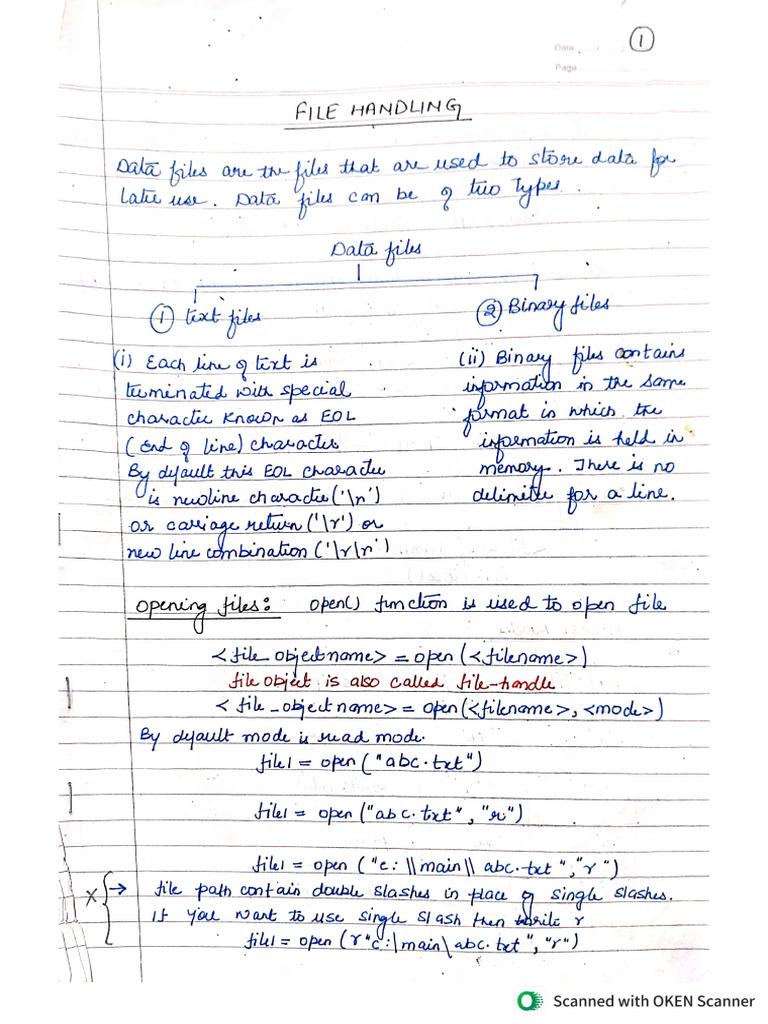 1
Date
Page
FILE HANDLING
Data files are the files that are used to store data for
later use. Data files can be of two types.
Data files
① text files
② Binary files
(i) Each line of text is
terminated with special
character known as EOL
(End of line) character
By default this EOL character
is newline character('\n')
or carriage return ('\r') or
new line combination ('\r\n')
(ii) Binary files contains
information in the same
format in which the
information is held in
memory. There is no
delimiter for a line.
Opening files: open() function is used to open file
<file_objectname> = open(<filename>)
file object is also called file-handle
<file_objectname> = open(<filename>, <mode>)
By default mode is read mode.
file1 = open("abc.txt")
file1 = open("abc.txt", "r")
file1 = open ("c:\\main\\abc.txt", "r")
X → file path contain double slashes in place of single slashes.
If you want to use single slash then write r
file1 = open (r"c:\main\abc.txt", "r")
Scanned with OKEN Scanner